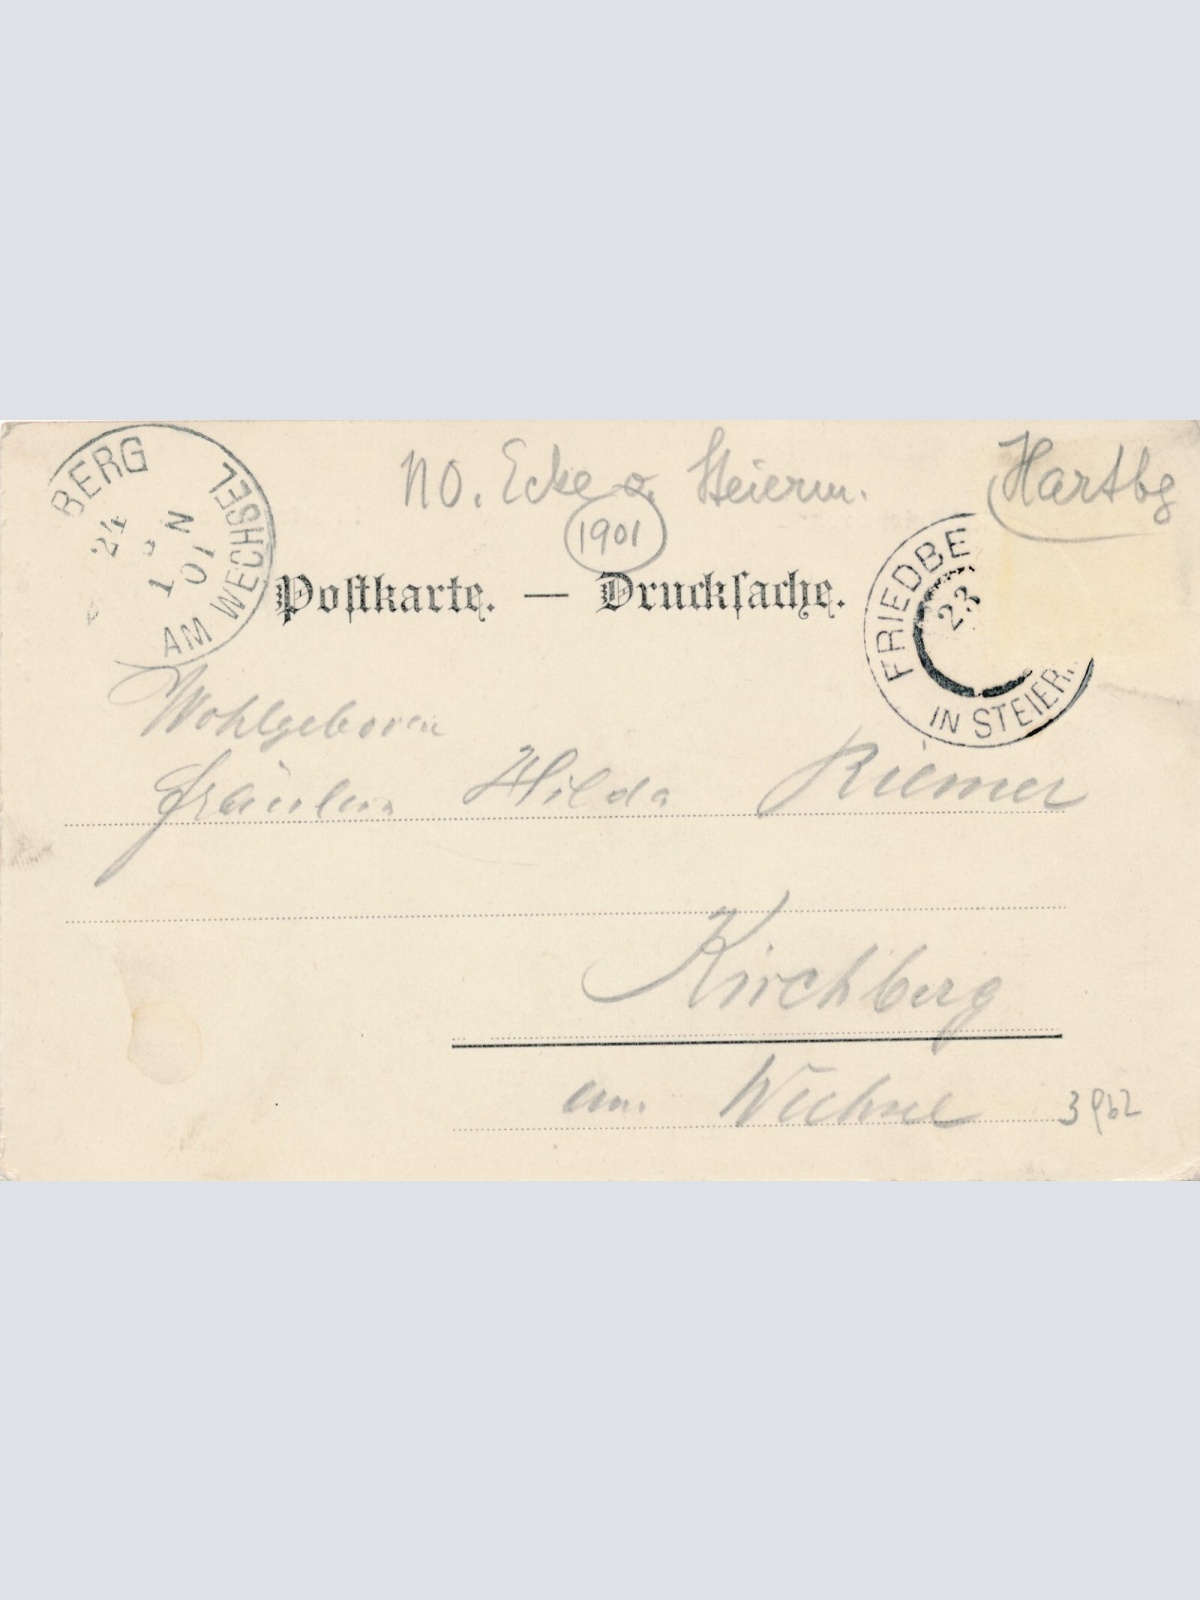 NO. Ecke d. Steierm. Hartbg
1901
BERG
24
1 N
01
AM WECHSEL
Postkarte. — Drucksache.
FRIEDBE
23
IN STEIERM
Wohlgeboren
Fräulein Hilda Riemer
Kirchberg
am Wechsel
3962